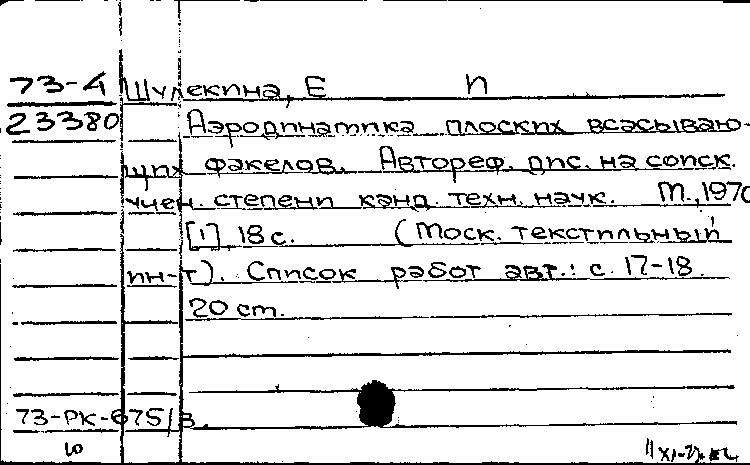 73-4 Шулекина, Е И
23380 Аэродинамика плоских всасываю-
щих факелов. Автореф. дис. на соиск.
учен. степени канд. техн. наук. М., 1970
[1], 18 с. (Моск. текстильный
ин-т). Список работ авт.: с. 17-18.
20 см.
73-РК-675/3.
10